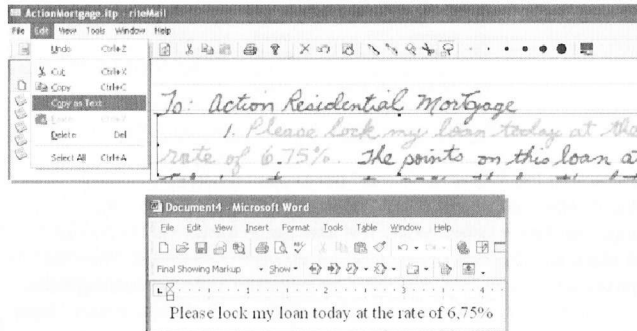 ActionMortgage.itp - riteMail
File Edit View Tools Window Help
Undo Ctrl+Z
Cut Ctrl+X
Copy Ctrl+C
Copy as Text
Delete Del
Select All Ctrl+A
To: Action Residential Mortgage
1. Please lock my loan today at the
rate of 6.75%. The points on this loan a
Document4 - Microsoft Word
File Edit View Insert Format Tools Table Window Help
Final Showing Markup Show
1 2 3 4
Please lock my loan today at the rate of 6,75%